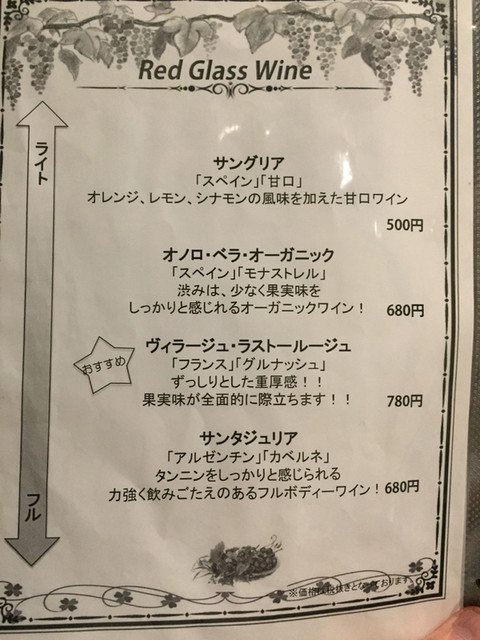 Red Glass Wine
ライト
サングリア
「スペイン」「甘口」
オレンジ、レモン、シナモンの風味を加えた甘口ワイン
500円
オノロ・ベラ・オーガニック
「スペイン」「モナストレル」
渋みは、少なく果実味を
しっかりと感じれるオーガニックワイン！
680円
おすすめ
ヴィラージュ・ラストールージュ
「フランス」「グルナッシュ」
ずっしりとした重厚感！！
果実味が全面的に際立ちます！！
780円
サンタジュリア
「アルゼンチン」「カベルネ」
タンニンをしっかりと感じられる
力強く飲みごたえのあるフルボディーワイン！
680円
フル
※価格は税抜きとなっております。